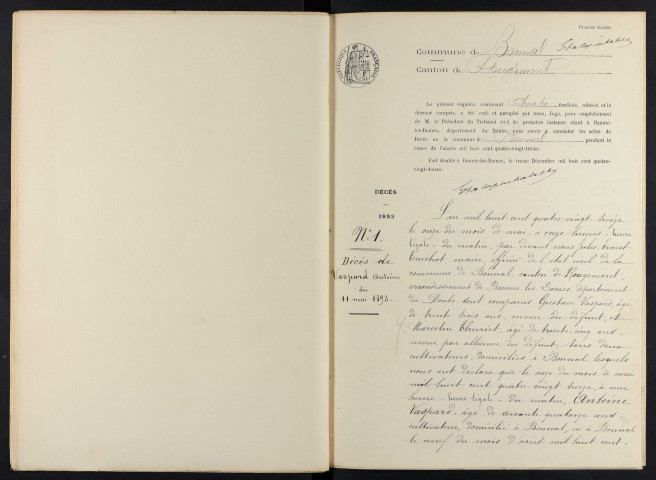 Premier feuillet.
Commune de Bonnal
Canton de Rougemont
RÉPUBLIQUE FRANÇAISE
Le présent registre, contenant feuillets, celui-ci et le
dernier compris, a été coté et paraphé par nous, Juge, pour empêchement
de M. le Président du Tribunal civil de première instance séant à Baume-
les-Dames, département du Doubs, pour servir à constater les actes de
Décès de la commune de Bonnal pendant le
cours de l'année mil huit cent quatre-vingt-treize.
Fait double à Baume-les-Dames, le treize Décembre mil huit cent quatre-
vingt-douze.
DÉCÈS
1893
N°. 1.
Décès de
Vaspard Antoine
du
11 mai 1893.
L'an mil huit cent quatre-vingt-treize
le onze du mois de mai, à onze heures - heure
légale - du matin, par devant nous Jules Ernest
Cuchot, maire, officier de l'état civil de la
commune de Bonnal canton de Rougemont,
arrondissement de Baume les Dames, département
du Doubs sont comparus Gustave Vaspard, âgé
de trente trois ans, neveu du défunt, et
Marcelin Thevriet, âgé de trente cinq ans,
neveu par alliance du défunt, tous deux
cultivateurs, domiciliés à Bonnal, lesquels
nous ont déclaré que le onze du mois de mai
mil huit cent quatre vingt treize, à une
heure - heure légale - du matin, Antoine
Vaspard, âgé de soixante quatorze ans,
cultivateur, domicilié à Bonnal, né à Bonnal
le neuf du mois d'août mil huit cent